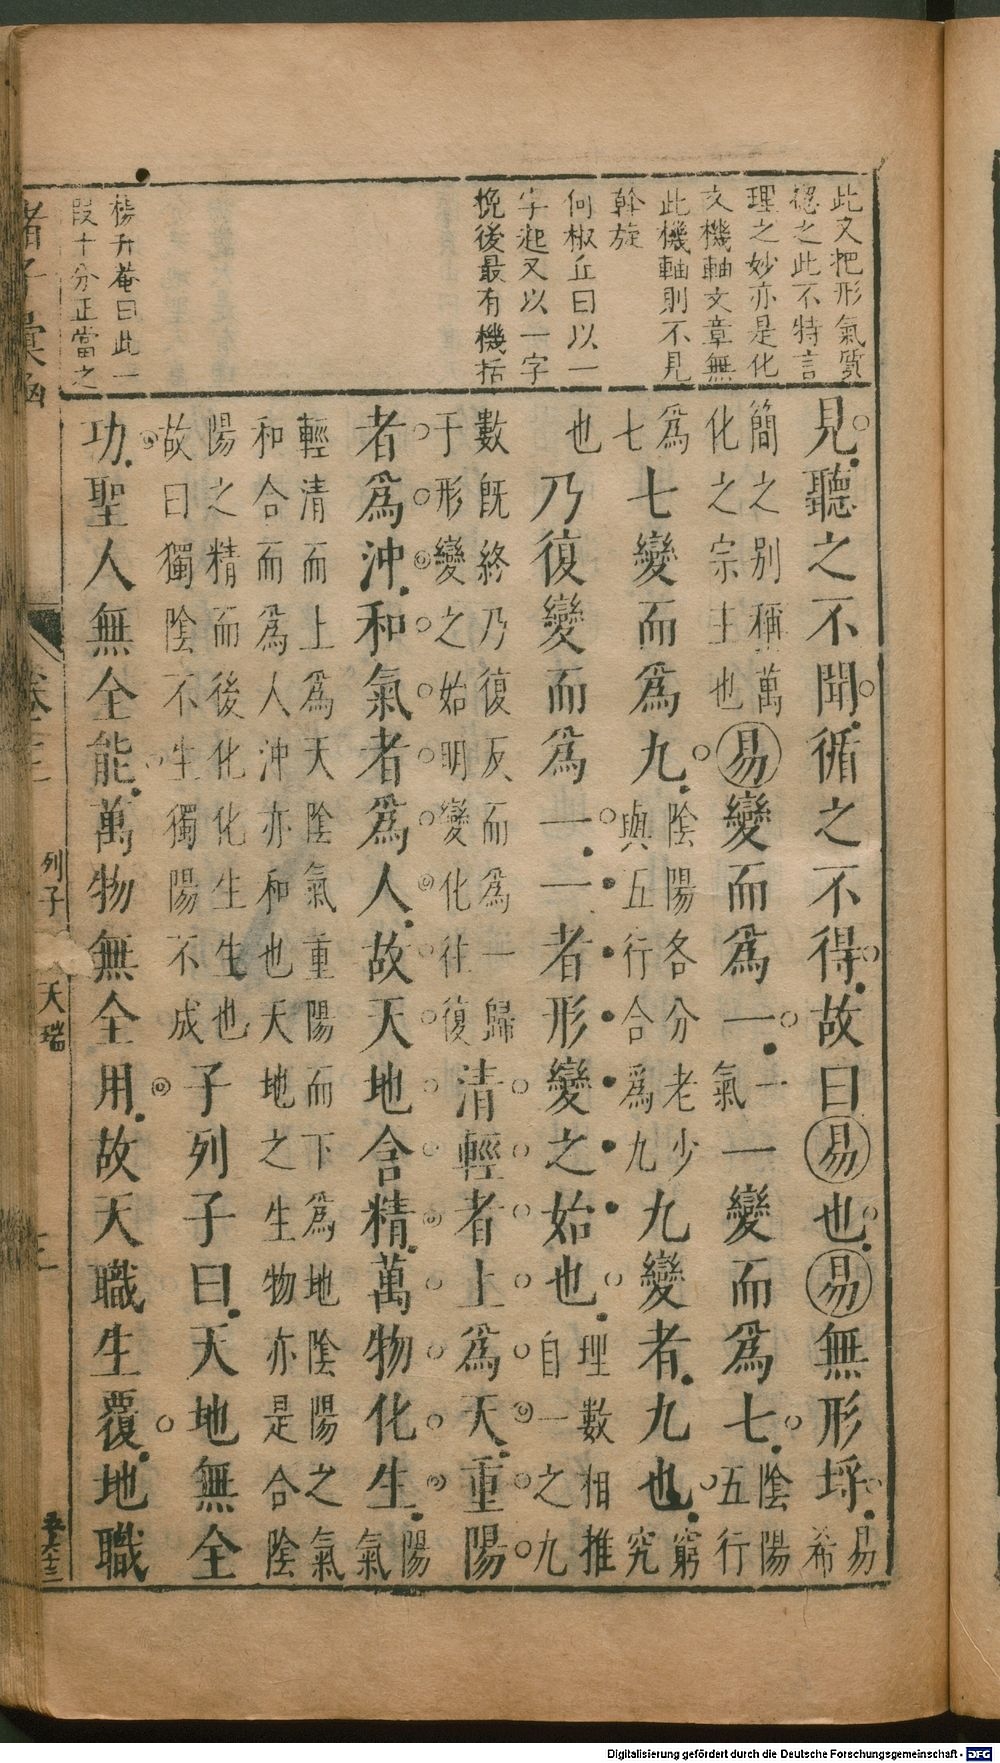 此又把形氣質
總之此不特言
理之妙亦是化
文機軸文章無
此機軸則不見
斡旋
何椒丘曰以一
字起又以一字
挽後最有機括
楊升菴曰此一
段十分正當之
見聽之不聞循之不得故曰易也易無形埒易希
簡之别稱萬化之宗主也易變而為一一氣一變而為七陰陽五行
為七七變而為九陰陽各分老少與五行合為九九變者九也窮究
也乃復變而為一一者形變之始也理數相推自一之九
數既終乃復反而為一歸于形變之始明變化往復清輕者上為天重陽
者為沖和氣者為人故天地含精萬物化生陽氣
輕清而上為天陰氣重陽而下為地陰陽之氣和合而為人沖亦和也天地之生物亦是合陰
陽之精而後化化生生也故曰獨陰不生獨陽不成子列子曰天地無全
功聖人無全能萬物無全用故天職生覆地職
諸子彙函
列子
天瑞
Digitalisierung gefördert durch die Deutsche Forschungsgemeinschaft - DFG